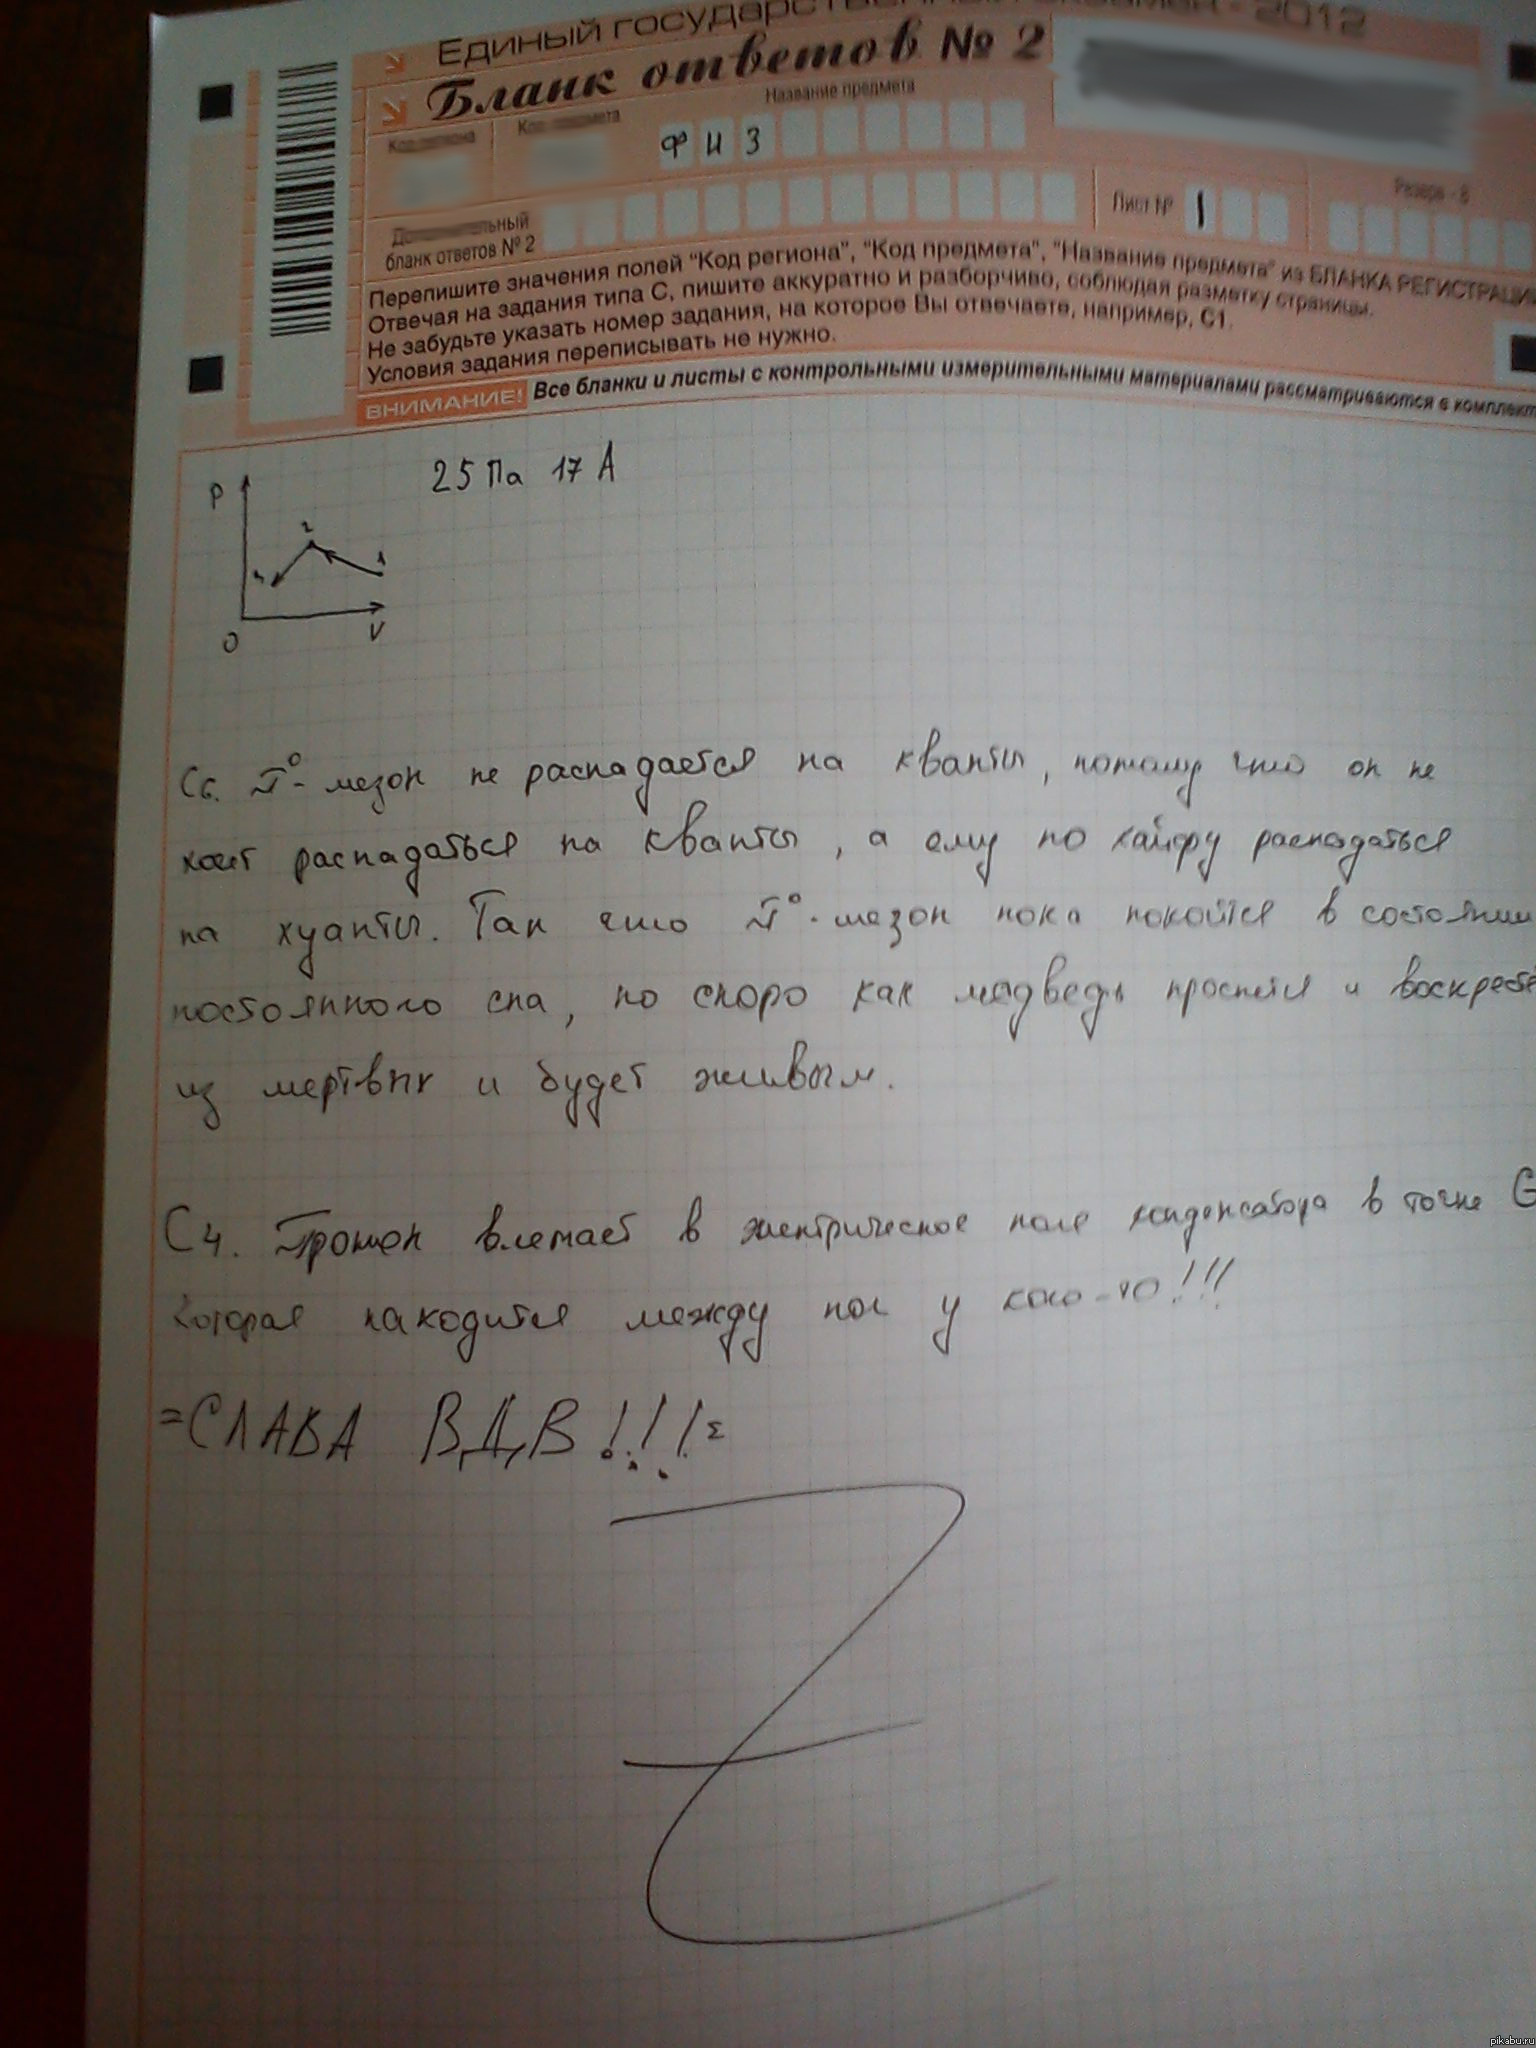 Единый государственный экзамен - 2012
Бланк ответов № 2
Название предмета
Код региона
Код предмета
ФИЗ
Резерв - 8
Лист № 1
Дополнительный
бланк ответов № 2
Перепишите значения полей "Код региона", "Код предмета", "Название предмета" из БЛАНКА РЕГИСТРАЦИ
Отвечая на задания типа С, пишите аккуратно и разборчиво, соблюдая разметку страницы.
Не забудьте указать номер задания, на которое Вы отвечаете, например, С1.
Условия задания переписывать не нужно.
ВНИМАНИЕ! Все бланки и листы с контрольными измерительными материалами рассматриваются в комплект
25 Па 17 А
P
2
1
O
V
С6. π⁰- мезон не распадается на кванты, потому что он не
хоет распадаться на кванты, а ему по кайфу распадаться
на хуанты. Так что π⁰-мезон пока покоится в состоянии
постоянного сна, но скоро как медведь проснется и воскресте
из мертвых и будет живым.
С4. Протон влетает в электрическое поле конденсатора в точке
которая находится между ног у кого-то!!!
=СЛАВА ВДВ!!!=
pikabu.ru